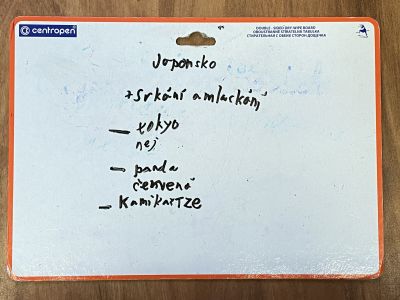 centropen
DOUBLE - SIDED DRY-WIPE BOARD
OBOUSTRANNĚ STÍRATELNÁ TABULKA
СТИРАТЕЛЬНАЯ С ОБЕИХ СТОРОН ДОЩЕЧКА
Japonsko
+ srkání a mlaskání
- tokyo
nej
- panda
červená
- KamiKaTZE